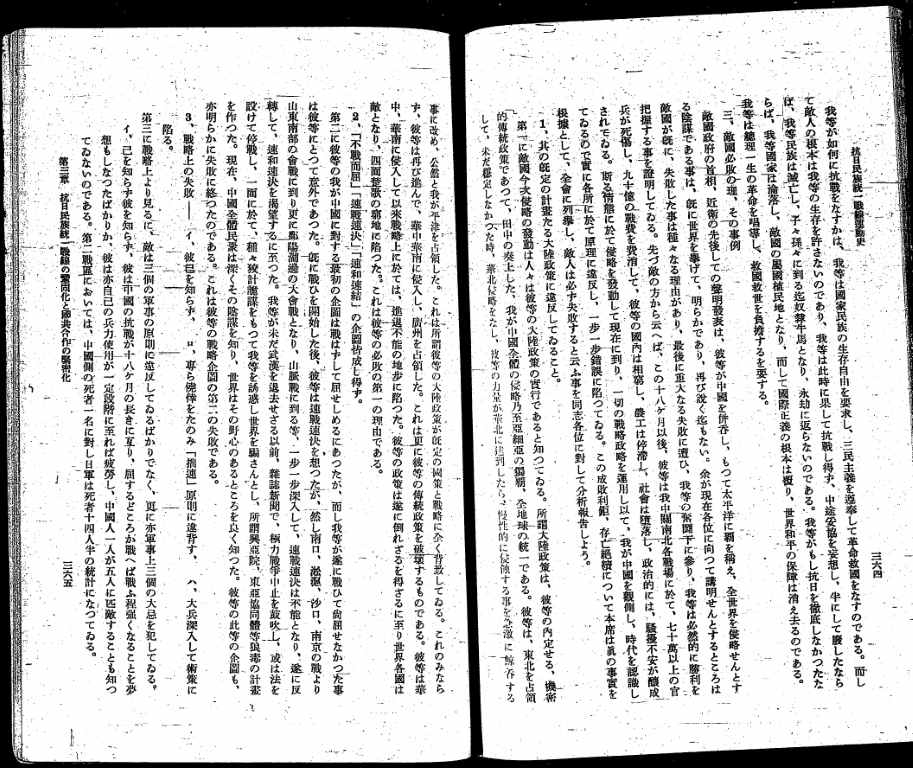 抗日民族統一戰線運動史
三六四
我等が如何に抗戰をなすかは、我等は國家民族の生存自由を要求し、三民主義を遵奉して革命救國をなすのである。而し
て敵人の根本は我等の生存を許さないのであり、我等は此時に果して抗戰し得ず、中途妥協を妄想し、半にして廢したなら
ば、我等民族は滅亡し、子々孫々に到る迄奴隸牛馬となり、永劫に返らないのである。我等がもし抗日を徹底しなかつたな
らば、我等國家は淪落し、敵國の屬國植民地となり、而して國際正義の根本は覆り、世界和平の保障は消え去るのである。
我等は總理一生の革命を唱導し、救國救世を負擔するを要する。
三、敵國必敗の理、その事例
敵國政府の首相、近衛の先後しての聲明發表は、彼等が中國を併呑し、もつて太平洋に覇を稱え、全世界を侵略せんとす
る陰謀である事は、既に世界を擧げて、明らかであり、再び說く迄もない。余が現在各位に向つて講明せんとするところは
敵國が既に、失敗した事は種々なる理由があり、最後に重大なる失敗に遭ひ、我等の奮鬪下に參り、我等は必然的に勝利を
把握する事を證明してゐる。先づ敵の方から云へば、この十八ヶ月以後、彼等は我中國南北各戰場に於て、七十萬以上の官
兵が死傷し、九十億の戰費を費消して、彼等の國內は相窮し、農工は停滯し、社會は墮落し、政治的には、騷擾不安が釀成
されてゐる。斯る情態に於て侵略を發動して現在に到り、一切の戰略政略を運用し以て、我が中國を觀測し、時代を認識し
てゐるので實に各所に於て原理に違反し、一步一步錯誤に陷つてゐる。この成敗利鈍、存亡絕續について本席は眞の事實を
根據として、全會に列擧し、敵人は必ず失敗すると云ふ事を同志各位に對して分析報告しよう。
1、其の既定の計畫たる大陸政策に違反してゐること。
第一に敵國今次侵略の發動は人々は彼等の大陸政策の實行であると知つてゐる。所謂大陸政策は、彼等の內定せる、機密
的傳統政策であつて、田中の奏上した、我が中國全體の侵略乃至亞細亞の獨覇、全地球の統一である。彼等は、東北を占領
して、未だ穩定しなかつた時、華北侵略をなし、彼等の力量が華北に達到したら、慢性的に侵蝕する事を急激に鯨呑する
事に改め、公然と我が平津を占領した。これは所謂彼等の大陸政策が既定の國策と戰略に全く背馳してゐる。これのみなら
ず、彼等は再び進んで、華中華南に侵入し、廣州を占領した。これは更に彼等の傳統政策を破壞するものである。彼等は華
中、華南に侵入して以來戰略上に於ては、進退不能の地步に陷つた。彼等の政策は遂に倒れざるを得ざるに至り世界各國は
敵となり、四面楚歌の窮地に陷つた。これは彼等の必敗の第一の理由である。
2、「不戰而屈」「速戰速決」「速和速結」の企圖皆成し得ず。
第二に彼等の我が中國に對する最初の企圖は戰はずして屈せしめるにあつたが、而し我等が遂に戰ひて尚屈せなかつた事
は彼等にとつて意外であつた。既に戰ひを開始した後、彼等は速戰速決を想つたが、然し南口、淞滬、沙口、南京の戰より
山東南部の會戰に到り更に鄱陽湖邊の大會戰となり、山嶽戰に到る等、一步一步深入して、速戰速決は不能となり、遂に反
轉して、速和速決を渴望するに至つた。我等が未だ武漢を退去せざる以前、雜誌新聞で、極力戰爭中止を鼓吹し、或は法を
設けて停戰し、一面に於て、種々狡計詭謀をもつて我等を誘惑し世界を騙さんとし、所謂興亞院、東亞協同體等狼毒の計畫
を作つた。現在、中國全體民衆は深くその陰謀を知り、世界はその野心のあるところを良く知つた。彼等の此等の企圖も、
亦明らかに失敗に終つたのである。これは彼等の戰略企圖の第二の失敗である。
3、戰略上の失敗――イ、彼己を知らず、 ロ、專ら僥倖をたのみ「拙速」原則に違背す、 ハ、大兵深入して術策に
陷る。
第三に戰略上より見るに、敵は三個の軍事の原則に違反してゐるばかりでなく、更に亦軍事上三個の大忌を犯してゐる。
イ、己を知らず彼を知らず、彼は中國の抗戰が十八ヶ月の長きに亙り、屈するどころか戰へば戰ふ程強くなることを夢
想もしなつたばかりか、彼は亦自己の兵力使用が一定段階に至れば疲勞し、中國人一人が五人に匹敵することも知つ
てゐないのである。第二戰區においては、中國側の死者一名に對し日軍は死者十四人半の統計になつてゐる。
第三章 抗日民族統一戰線の鞏固化と國共合作の緊密化
三六五